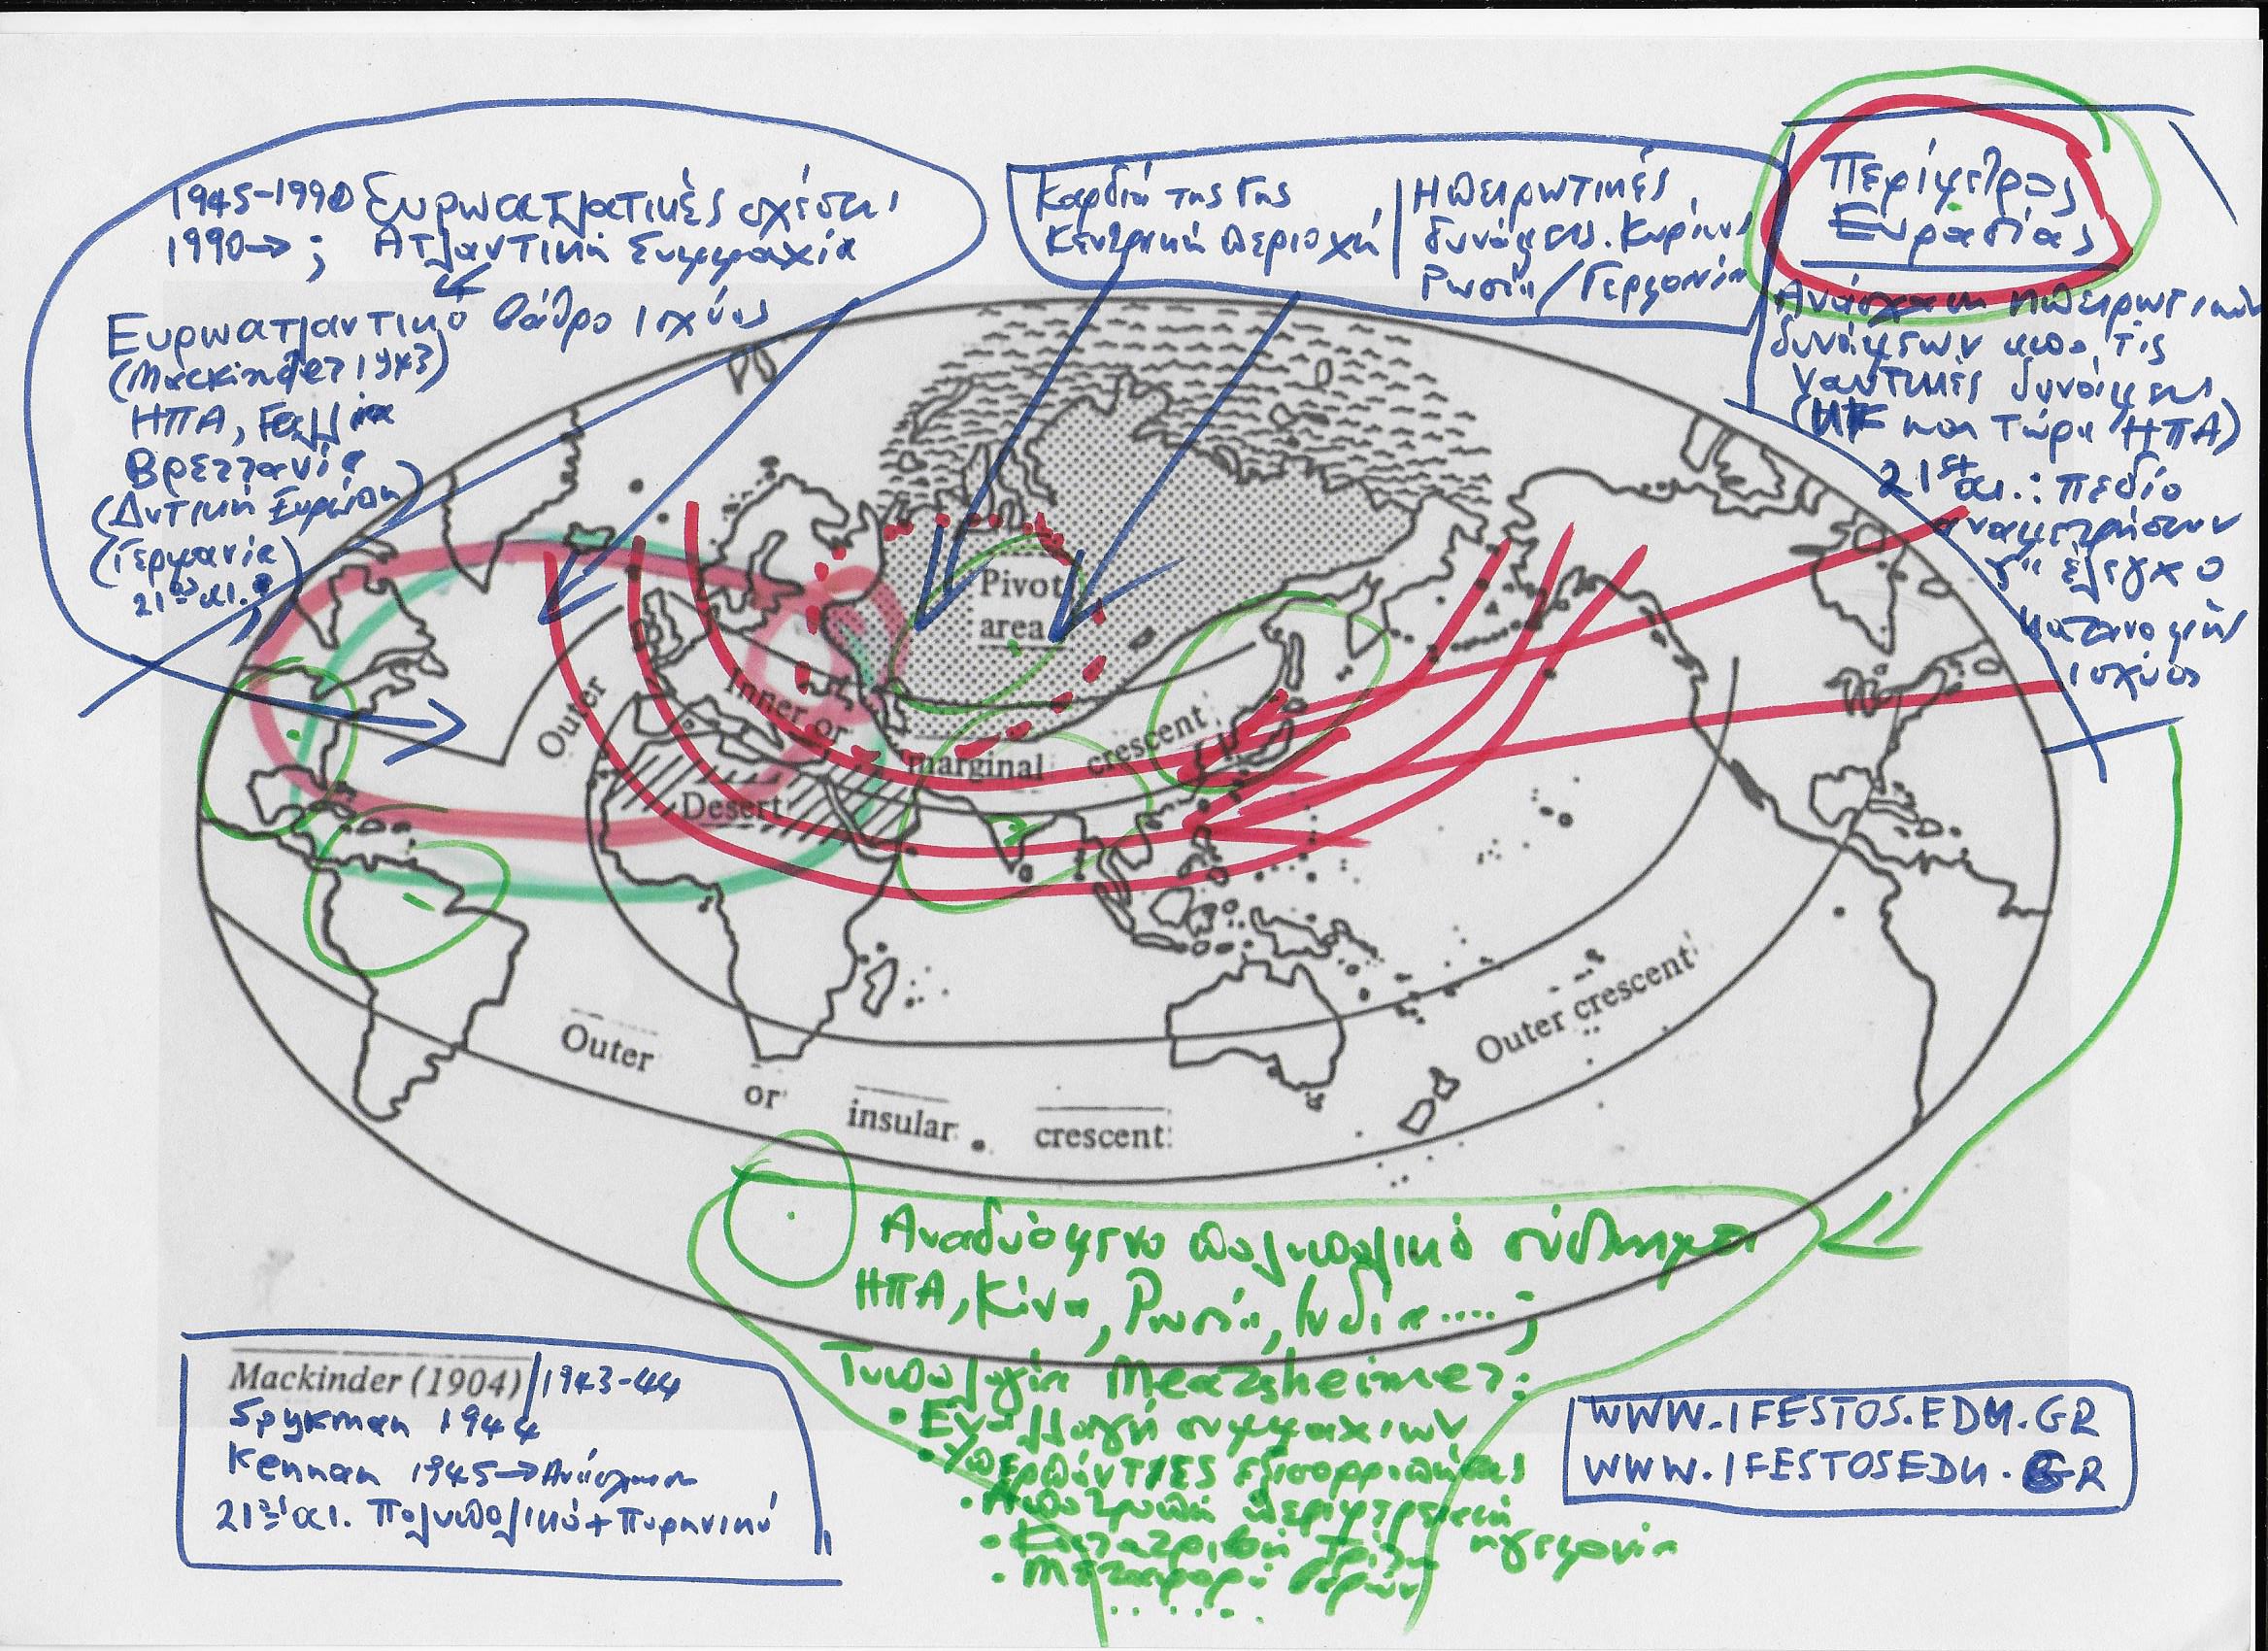 1945-1990 Ευρωατλαντικές σχέσεις
1990→ ; Ατλαντική Συμμαχία
Ευρωατλαντικό βάθρο ισχύος
(Mackinder 1943)
ΗΠΑ, Γαλλία
Βρεττανία
(Δυτική Ευρώπη)
(Γερμανία
21ος αι. ;
Καρδιά της Γης
Κεντρική περιοχή
Ηπειρωτικές
δυνάμεις. Κυρίως
Ρωσία/Γερμανία
Περίμετρος
Ευρασίας
Ανάσχεση ηπειρωτικών
δυνάμεων από τις
ναυτικές δυνάμεις
(και τώρα ΗΠΑ)
21st αι.: πεδίο
αναμετρήσεων
για έλεγχο
κατανομής
ισχύος
Pivot
area
Outer
Inner or
marginal
crescent
Desert
Outer
or
insular
crescent
Outer crescent
Αναδυόμενο πολυπολικό σύστημα
ΗΠΑ, Κίνα, Ρωσία, Ινδία....;
Τυπολογία Mearsheimer:
• Εναλλαγή συμμαχιών
• Υπερπόντιες εξισορροπήσεις
• Αποτροπή περιφερειακή
ηγεμονία
• Κατατριβή τρίτων
• Μεταφορά βαρών
......
Mackinder (1904)/1943-44
Spykman 1944
Kennan 1945→Ανάσχεση
21ος αι. Πολυπολικό+Πυρηνικό
WWW.IFESTOS.EDU.GR
WWW.IFESTOSEDU.GR